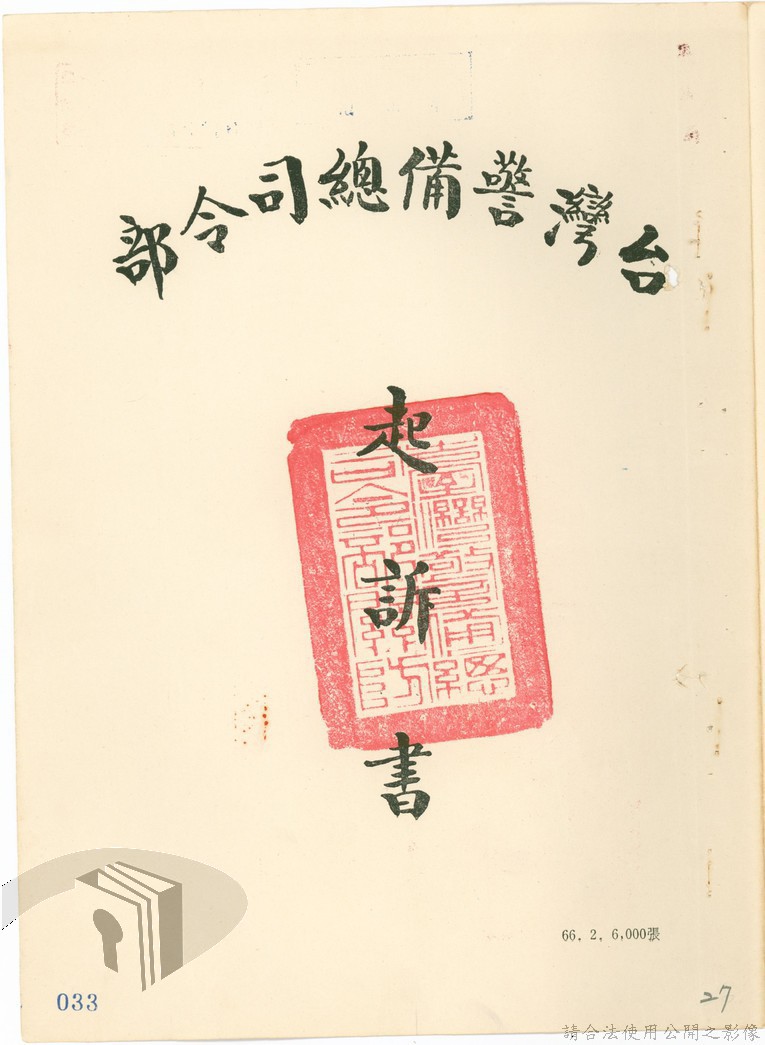 台灣警備總司令部
起訴書
臺灣警備總
司令部
66. 2. 6,000張
033
27
請合法使用公開之影像